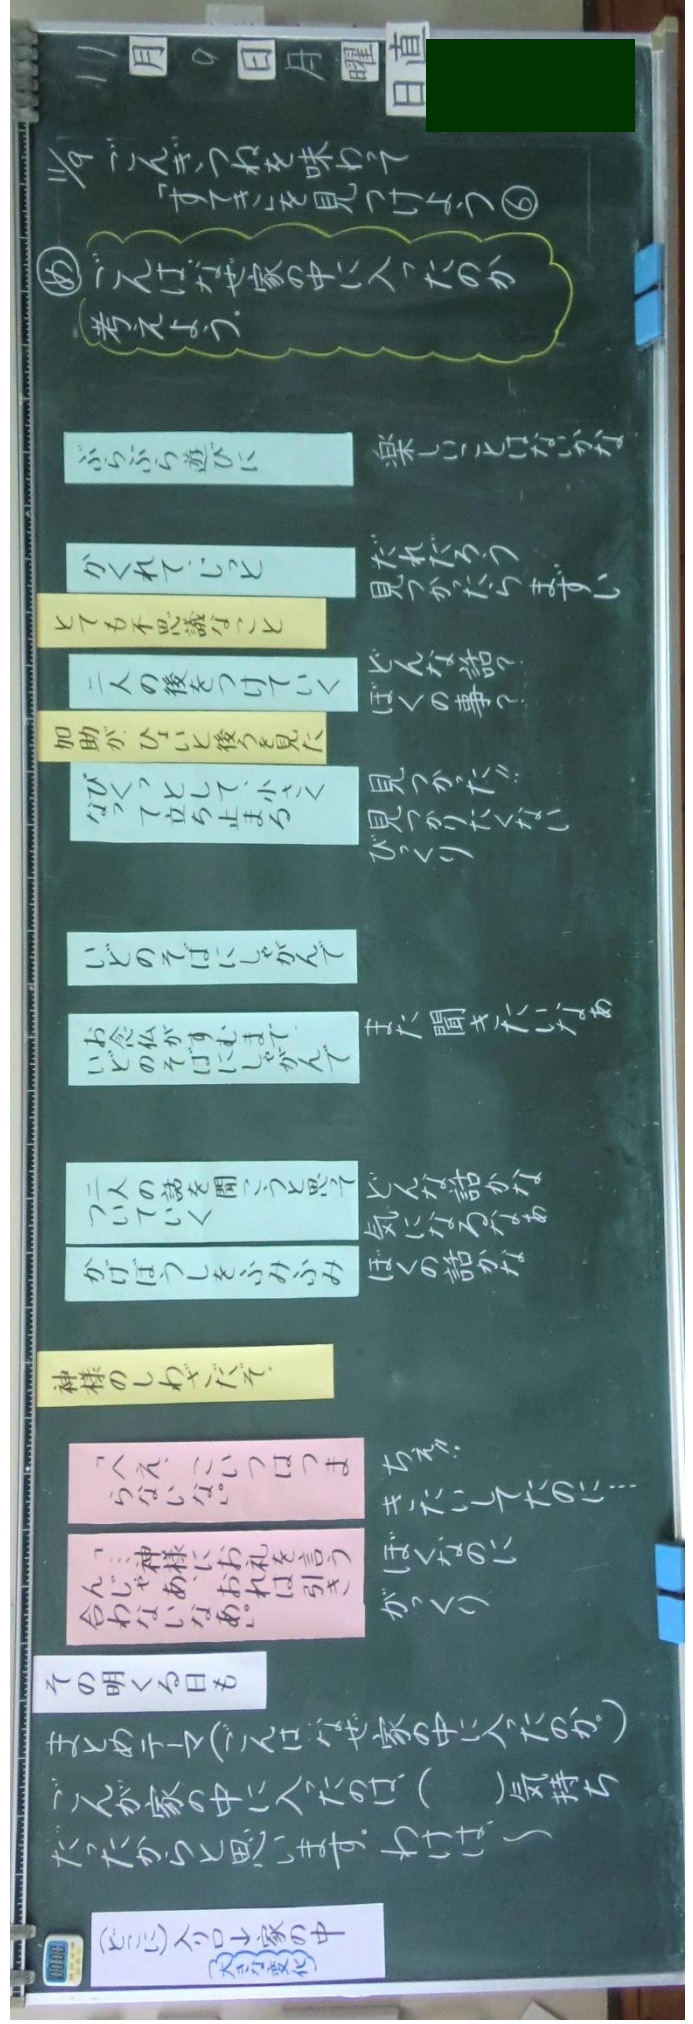 11月9日月曜
日直
11/9 ごんぎつねを味わって
「すてき」を見つけよう⑥
め ごんはなぜ家の中に入ったのか
考えよう。
ぶらぶら遊びに
楽しいことはないかな
かくれて、じっと
だれだろう
見つかったらまずい
とても不思議なこと
二人の後をつけていく
どんな話?
ぼくの事?
加助が、ひょいと後ろを見た
びくっとして、小さく
なって立ち止まる
見つかった!!
見つかりたくない
びっくり
いどのそばにしゃがんで
お念仏がすむまで、
いどのそばにしゃがんで
また聞きたいなぁ
二人の話を聞こうと思って
ついていく
どんな話かな
気になるなぁ
かげぼうしをふみふみ
ぼくの話かな
神様のしわざだぞ
「へえ、こいつはつま
らないな。」
ちえ!!
きたいしてたのに…
「…神様にお礼を言う
んじゃあ、おれは引き
合わないなあ。」
ぼくなのに
がっくり
その明くる日も
まとめテーマ(ごんはなぜ家の中に入ったのか。)
ごんが家の中に入ったのは、( )気持ち
だったからと思います。わけは、〜
(どこに)入り口→家の中
大きな変化